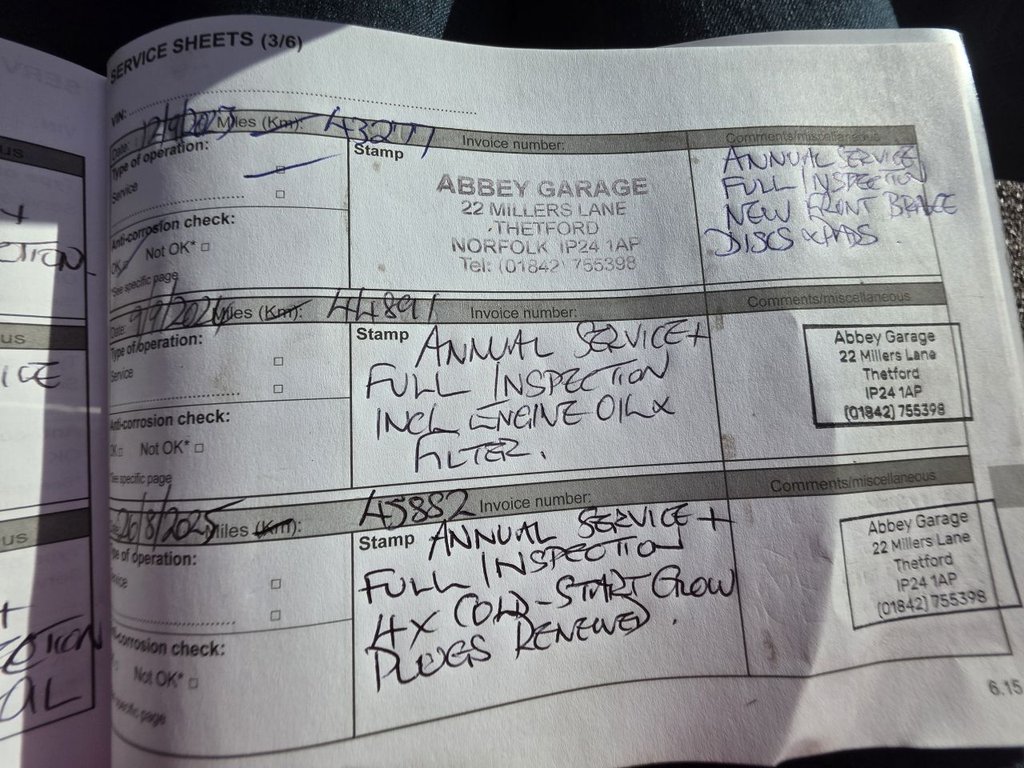 SERVICE SHEETS (3/6)
VIN:
Date: 12/9/2023 Miles (Km): 43277 Invoice number: Comments/miscellaneous
Type of operation:
Service
Anti-corrosion check:
OK Not OK*
*See specific page
Stamp
ABBEY GARAGE
22 MILLERS LANE
THETFORD
NORFOLK IP24 1AP
Tel: (01842) 755398
ANNUAL SERVICE
FULL INSPECTION
NEW FRONT BRAKE
DISCS & PADS
Date: 9/9/2024 Miles (Km): 44891 Invoice number: Comments/miscellaneous
Type of operation:
Service
Anti-corrosion check:
OK Not OK*
*See specific page
Stamp
ANNUAL SERVICE +
FULL INSPECTION
INCL ENGINE OIL &
FILTER.
Abbey Garage
22 Millers Lane
Thetford
IP24 1AP
(01842) 755398
26/8/2025 Miles (Km): 45882 Invoice number: Comments/miscellaneous
Type of operation:
Service
Anti-corrosion check:
Not OK*
specific page
Stamp
ANNUAL SERVICE +
FULL INSPECTION
4X COLD-START GLOW
PLUGS RENEWED.
Abbey Garage
22 Millers Lane
Thetford
IP24 1AP
(01842) 755398
6.15